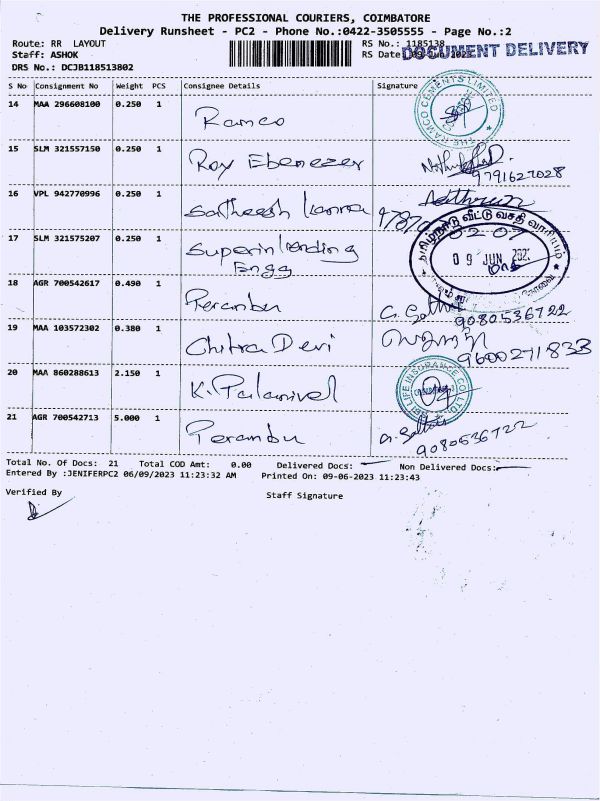 THE PROFESSIONAL COURIERS, COIMBATORE
Delivery Runsheet - PC2 - Phone No.:0422-3505555 - Page No.:2
Route: RR LAYOUT
RS No.: 1185138
Staff: ASHOK
RS Date: 09-Jun-2023
DOCUMENT DELIVERY
DRS No.: DCJB118513802
S No Consignment No Weight PCS Consignee Details Signature
14 MAA 296608100 0.250 1 Ramco
THE RAMCO CEMENTS LIMITED
15 SLM 321557150 0.250 1 Roy Ebenezer
9791627028
16 VPL 942770996 0.250 1 Satheesh Kanna
17 SLM 321575207 0.250 1 Superintending
Engg
தமிழ்நாடு வீட்டு வசதி வாரியம்
09 JUN 2023
18 AGR 700542617 0.490 1 Perambu
9080536722
19 MAA 103572302 0.380 1 Chitra Devi
9600271833
20 MAA 860288613 2.150 1 K. Palanivel
LIFE INSURANCE CO. LTD.
21 AGR 700542713 5.000 1 Perambu
9080536722
Total No. Of Docs: 21 Total COD Amt: 0.00 Delivered Docs: Non Delivered Docs:
Entered By :JENIFERPC2 06/09/2023 11:23:32 AM Printed On: 09-06-2023 11:23:43
Verified By
Staff Signature